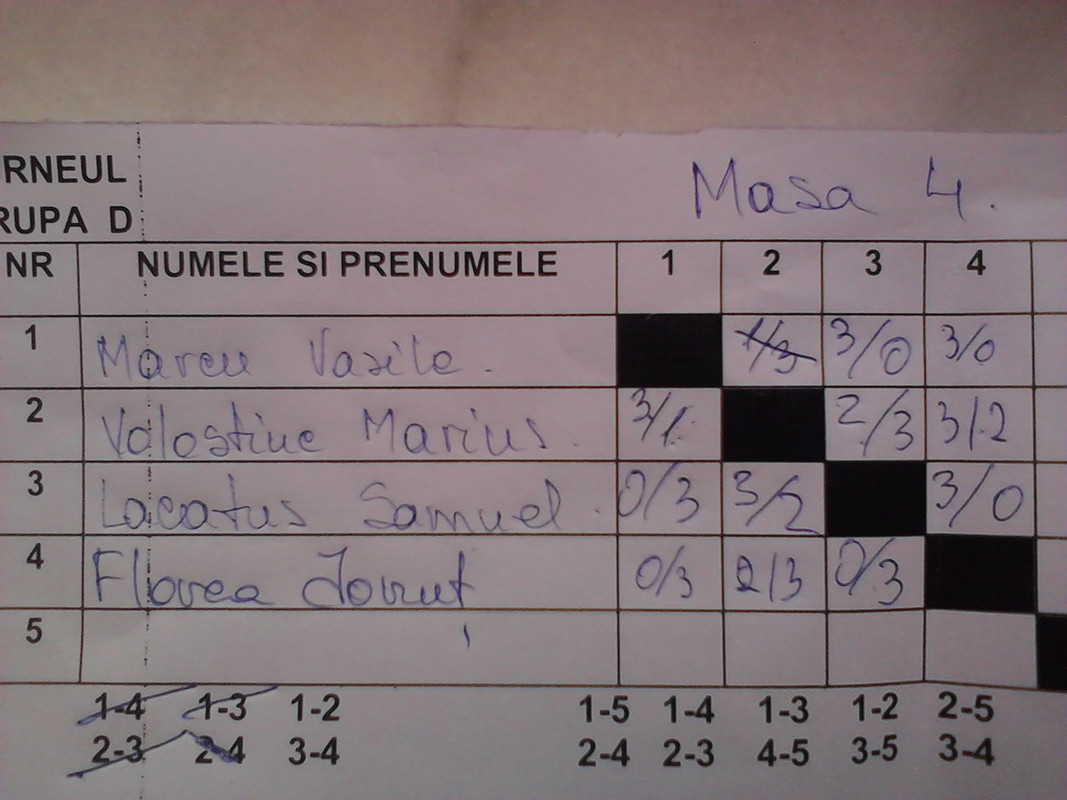 RNEUL
RUPA D
Masa 4.
NR NUMELE SI PRENUMELE 1 2 3 4
1 Marcu Vasile. 1/3 3/0 3/0
2 Volostiuc Marius. 3/1 2/3 3/2
3 Lacatus Samuel. 0/3 3/2 3/0
4 Florea Ionut 0/3 2/3 0/3
5
1-4 1-3 1-2 1-5 1-4 1-3 1-2 2-5
2-3 2-4 3-4 2-4 2-3 4-5 3-5 3-4